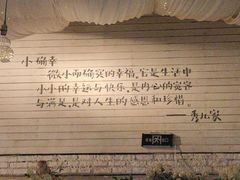 小确幸
微小而确实的幸福，它是生活中
小小的幸运与快乐，是内心的宽容
与满足，是对人生的感恩和珍惜。
——秀儿家